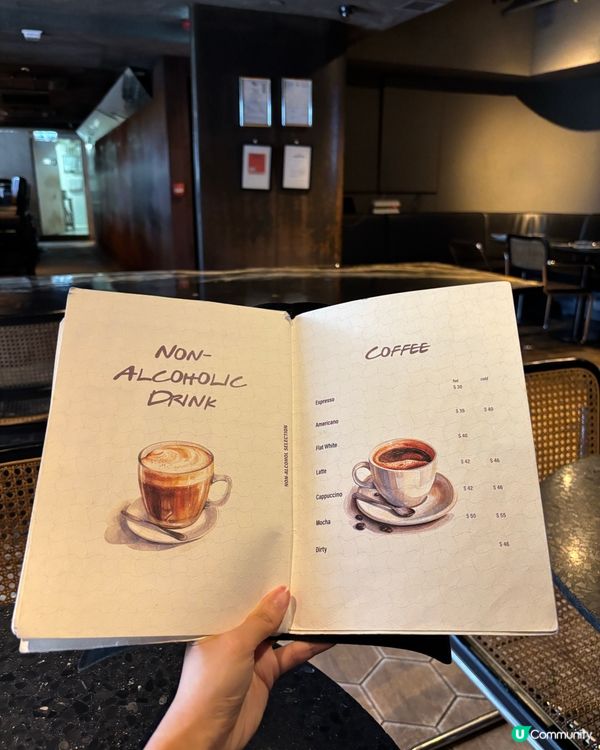 NON-
ALCOHOLIC
DRINK
NON-ALCOHOL SELECTION
COFFEE
hot cold
Espresso $ 30
Americano $ 39 $ 40
Flat White $ 40
Latte $ 42 $ 46
Cappuccino $ 42 $ 46
Mocha $ 50 $ 55
Dirty $ 46
U Community